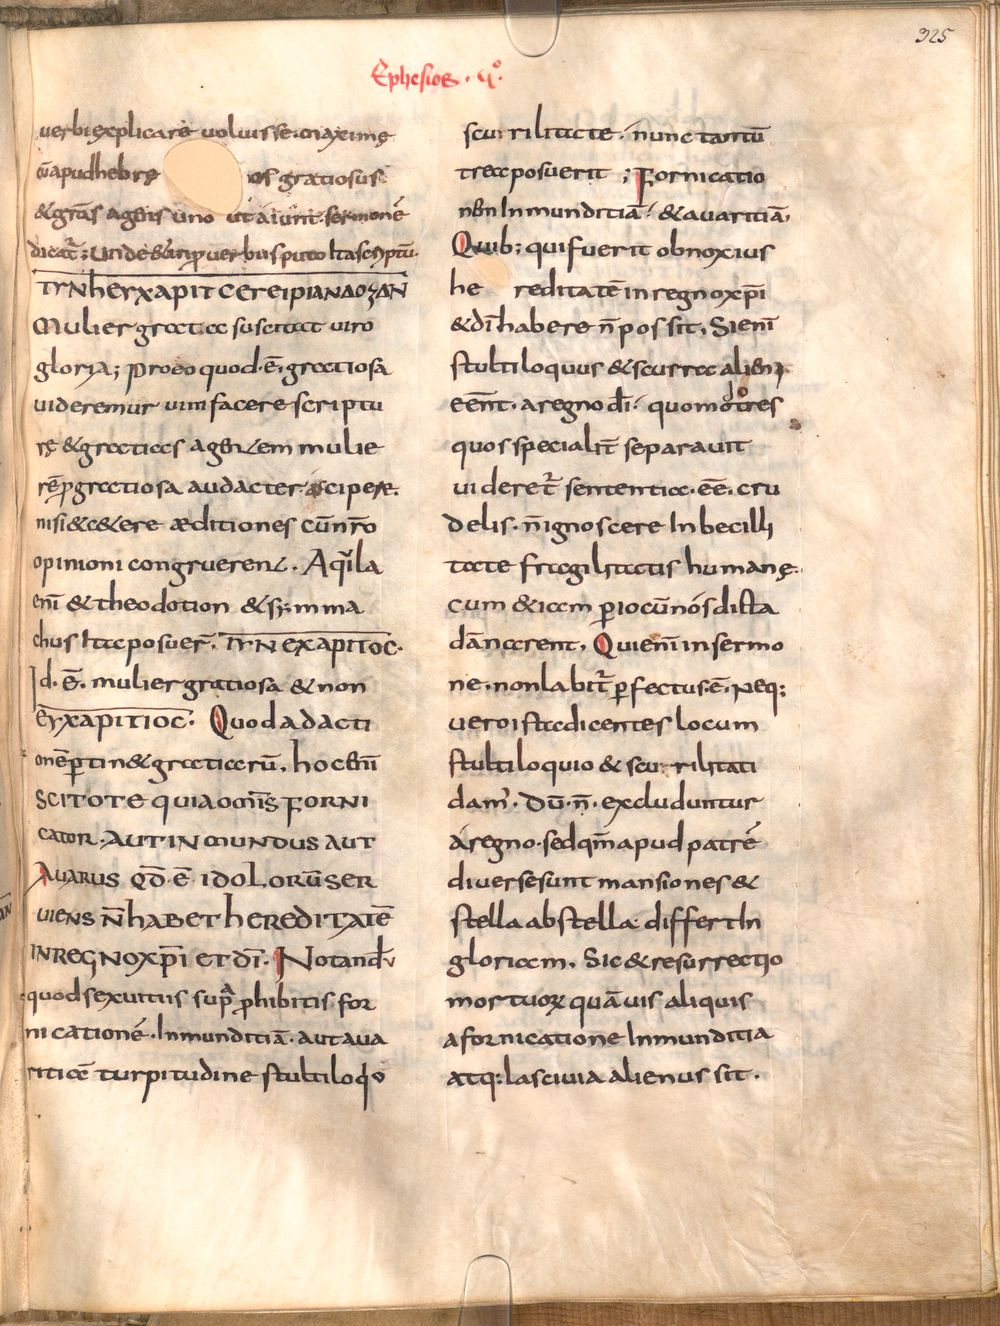 325
Ephesios . q°.
uerbi explicare uoluisse. maxime
cū apud hebrę os gratiosus
& grās agens uno ut aiunt sermonē
ΓΥΝΗ ΕΥΧΑΡΙΤC ΕΓΕΙΡΙ ΑΝΔΟΖΑΝ
Mulier gratiae suscitat uiro
gloria; Proeo quod .ē. gratiosa
uideremur uim facere scriptu
rę & gratias agentem mulie
rē p̱ gratiosa audacter accipere.
nisi & c&ere æditiones cūnr̄o
opinioni congruerent. Aq̄ila
enī & theodotion & symma
chus ita posuer̄. ΓΥΝ ΕΧΑΡΙΤΟC.
Id .ē. mulier gratiosa & non
ΕΥΧΑΡΙΤΙΟC. Quod ad acti
onē ꝑtin& gratiarū. hoc enī
SCITOTE QUIA OMĪS FORNI
CATOR. AUT INMUNDUS AUT
AUARUS QD̄ .Ē. IDOLORŪ SER
UIENS N̄ HABET HEREDITATĒ
IN REGNO XP̄I ET DĪ. Notand̄
quod sex uitiis supa prohibitis for
nicationē. Inmunditiā. aut aua
ritiā turpitudine stultiloq̇o
scurrilitate. nunc tantū
trea posuerit ; Fornicatio
nēn Inmunditiā. & auaritiā,
Quib; qui fuerit obnoxius
he reditatē in regno xp̄i
& dī habere n̄ possit, Si enī
stultiloquus & scurra alieni
eēnt. a regno dī. quomodo tres
quos specialit̄ separauit
uideret̄ sententia. eē. cru
delis. n̄ ignoscere Inbecilli
tate fragilitatis humanę.
cum & iam periocū nos dista
dā narent, Qui enī in sermo
ne. non labit̄ perfectus .ē. Neq;
uero ista dicentes locum
stultiloquio & scurrilitati
dam'. Dū .n̄. excluduntur
á regno. sed qm̄ apud patrē
diuerse sunt mansiones &
stella ab stella differt In
gloriam. Sic & resurrectio
mortuoꝝ quāuis aliquis
a fornicatione Inmunditia
atq; lasciuia alienus sit.